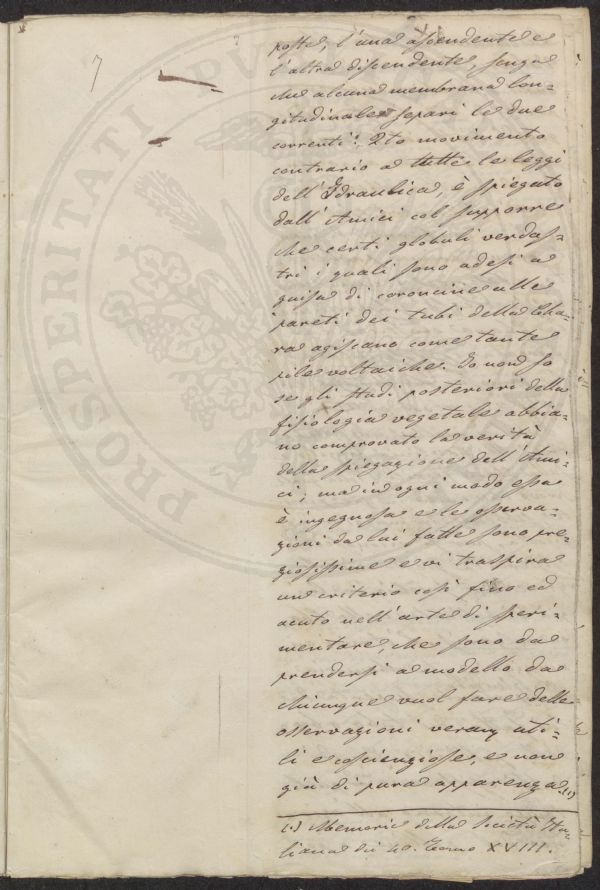 7
poste, l'una ascendente e
l'altra discendente, senza
che alcuna membrana lon=
gitudinale separi le due
correnti. Qto movimento
contrario a tutte le leggi
dell'Idraulica, è spiegato
dall'Amici col supporre
che certi globuli verdas=
tri i quali sono adesi a
guisa di coroncine alle
pareti dei tubi della Cha=
ra agiscano come tante
pile voltaiche. Io non so
se gli studi posteriori della
fisiologia vegetale abbia=
no comprovato la verità
della spiegazione dell'Ami=
ci; ma in ogni modo essa
è ingegnosa e le osserva=
zioni da lui fatte sono pre=
ziosissime e vi traspira
un criterio così fino ed
acuto nell'arte di speri=
mentare, che sono da
prendersi a modello da
chiunque vuol fare delle
osservazioni veram. uti=
li e coscienziose, e non
già di pura apparenza (1)
(1) Memorie della Società Ita=
liana dei 40. Tomo XVIII.
PROSPERITATI PU